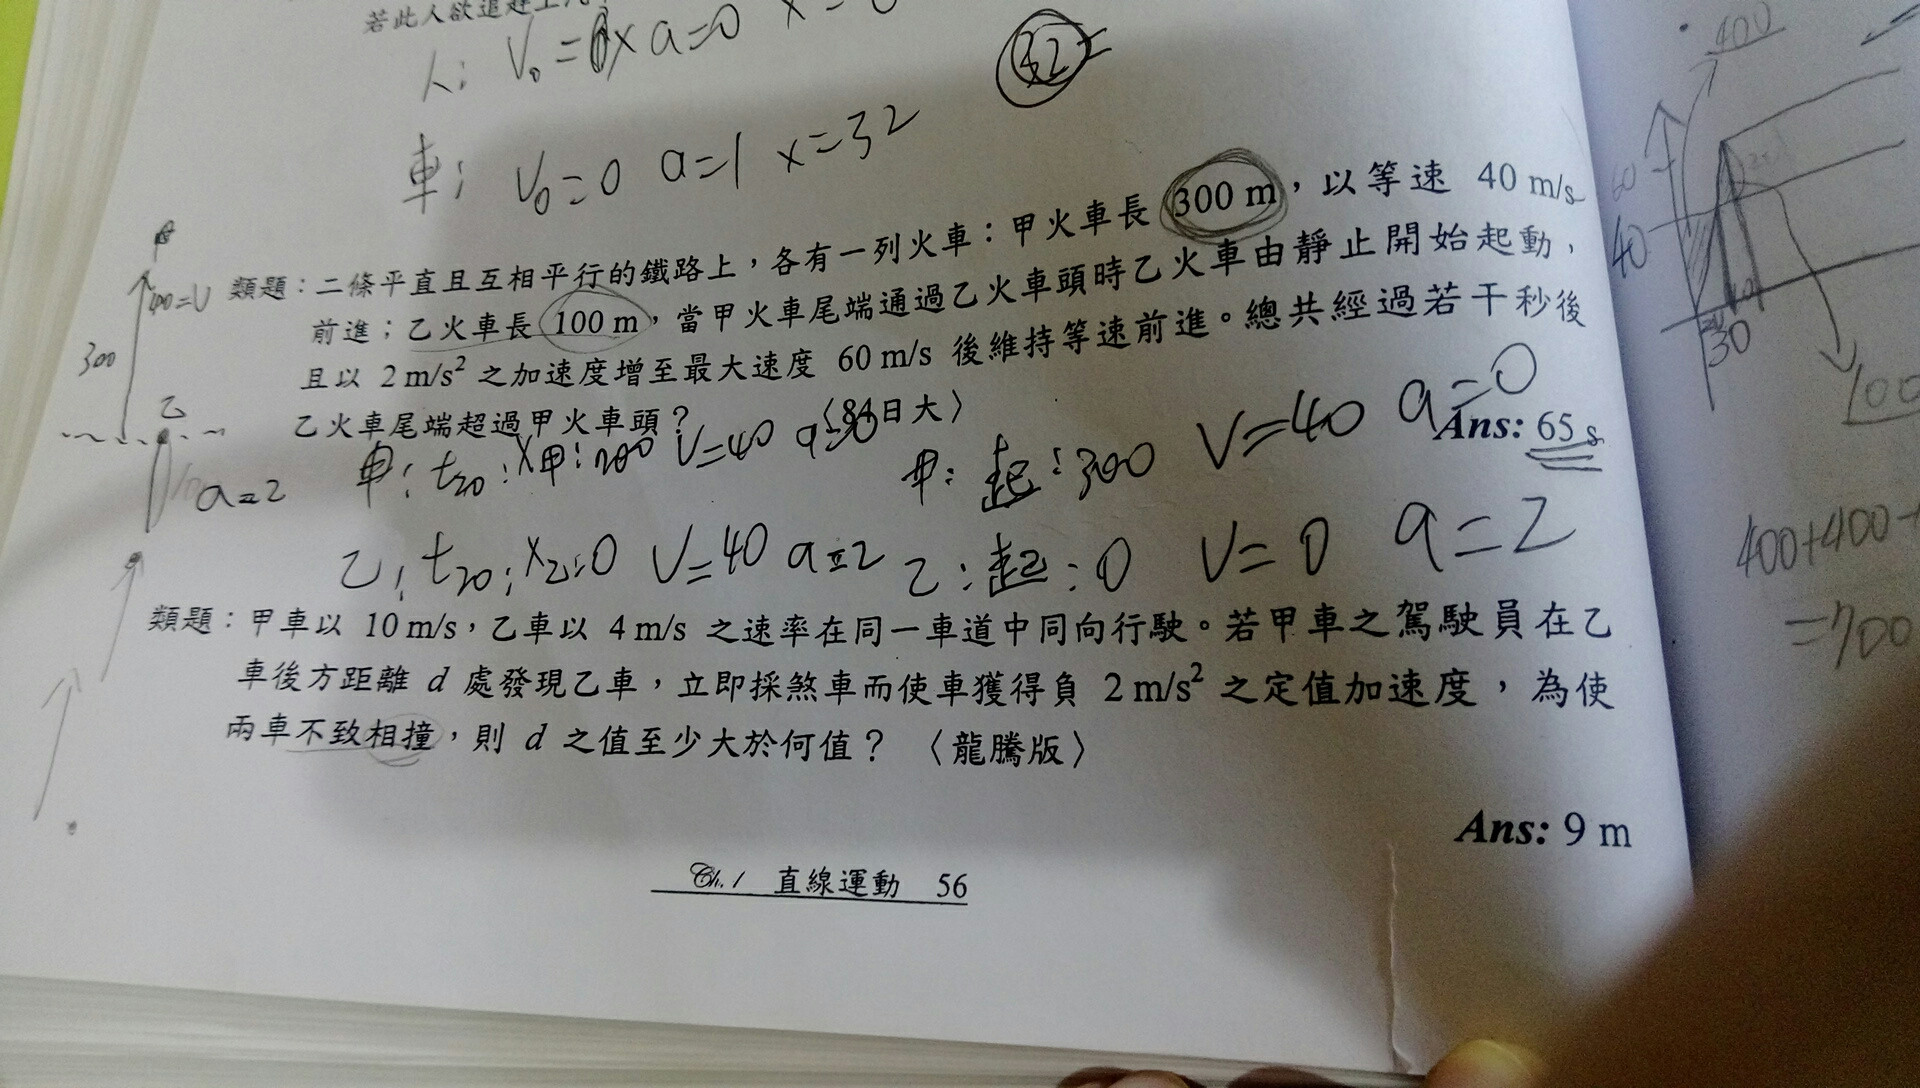 若此人欲追趕上
人: V₀ = x a=0 x=0
32
車: V₀=0 a=1 x=32
類題：二條平直且互相平行的鐵路上，各有一列火車：甲火車長 300 m，以等速 40 m/s
前進；乙火車長 100 m，當甲火車尾端通過乙火車頭時乙火車由靜止開始起動，
且以 2 m/s² 之加速度增至最大速度 60 m/s 後維持等速前進。總共經過若干秒後
乙火車尾端超過甲火車頭？ 〈84日大〉
Ans: 65 s
甲: 起: 300 V=40 a=0
乙: 起: 0 V=0 a=2
乙: t₂₀: x乙:0 V=40 a=2
300
乙
a=2
類題：甲車以 10 m/s，乙車以 4 m/s 之速率在同一車道中同向行駛。若甲車之駕駛員在乙
車後方距離 d 處發現乙車，立即採煞車而使車獲得負 2 m/s² 之定值加速度，為使
兩車不致相撞，則 d 之值至少大於何值？ 〈龍騰版〉
Ans: 9 m
Ch.1 直線運動 56
400
60
40
30
100
400+400+
=700